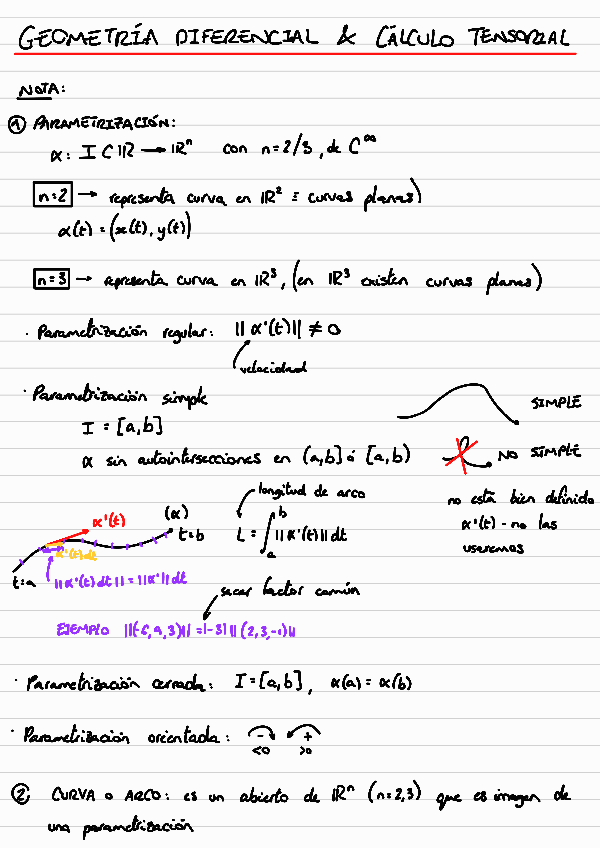 GEOMETRÍA DIFERENCIAL & CÁLCULO TENSORIAL
NOTA:
① PARAMETRIZACIÓN:
α: I ⊂ ℝ → ℝⁿ con n=2/3, de C^∞
n=2 → representa curva en ℝ² ≡ curvas planas)
α(t) = (x(t), y(t))
n=3 → representa curva en ℝ³, (en ℝ³ existen curvas planas)
· Parametrización regular: ||α'(t)|| ≠ 0
velocidad
· Parametrización simple
I = [a,b]
α sin autointersecciones en (a,b] ó [a,b)
SIMPLE
NO SIMPLE
no está bien definido
α'(t) - no las
usaremos
longitud de arco
L = ∫_a^b ||α'(t)|| dt
α'(t)
(α)
t=b
α'(t)dt
t=a
||α'(t)dt|| = ||α'||dt
sacar factor común
EJEMPLO ||(-6,9,3)|| = |-3| ||(2,3,-1)||
· Parametrización cerrada: I=[a,b], α(a) = α(b)
· Parametrización orientada: - +
<0 >0
② CURVA o ARCO: es un abierto de ℝⁿ (n=2,3) que es imagen de
una parametrización